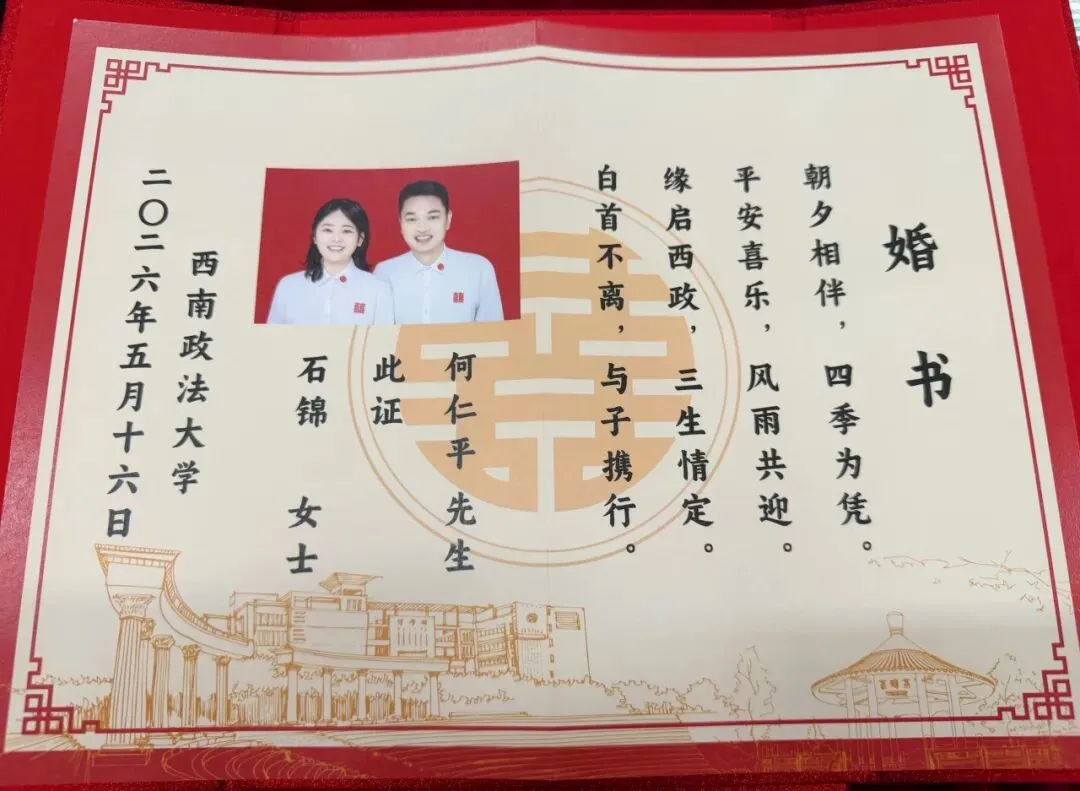 婚书
朝夕相伴，四季为凭。
平安喜乐，风雨共迎。
缘启西政，三生情定。
白首不离，与子携行。
何仁平先生
此证
石锦 女士
西南政法大学
二〇二六年五月十六日